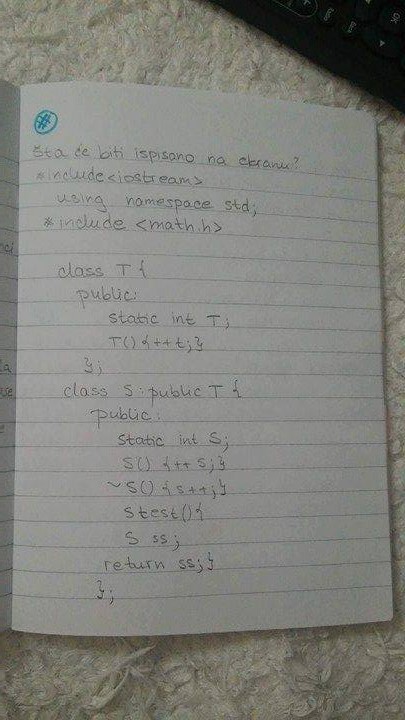 #
Šta će biti ispisano na ekranu?
*include<iostream>
using namespace std;
*include <math.h>
class T {
public:
static int T;
T() {++t;}
};
class S : public T {
public:
static int S;
S() {++S;}
~S() {s++;}
S test(){
S ss;
return ss;}
};